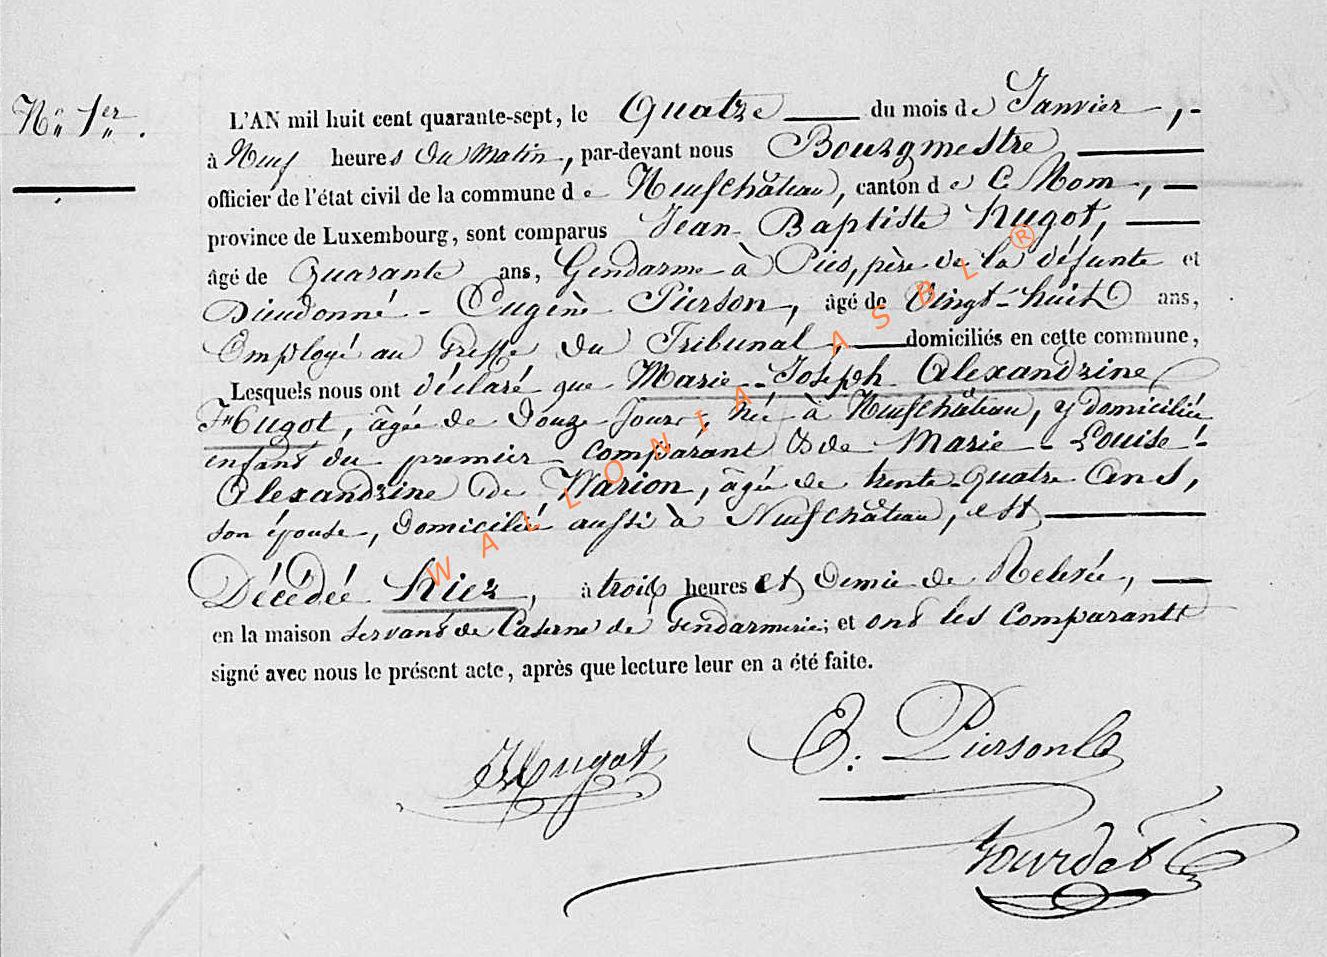 N° 1er.
L'AN mil huit cent quarante-sept, le Quatre du mois de Janvier,
à Neuf heures du Matin, par-devant nous Bourgmestre
officier de l'état civil de la commune de Neufchâteau, canton de ce Nom,
province de Luxembourg, sont comparus Jean-Baptiste Hugot,
âgé de Quarante ans, Gendarme à Pied, père de la défunte et
Dieudonné-Eugène Pierson, âgé de Vingt-huit ans,
Employé au Greffe du Tribunal, domiciliés en cette commune,
Lesquels nous ont déclaré que Marie-Joseph Alexandrine
Hugot, âgée de douze jours, née à Neufchâteau, y domiciliée
enfant du premier comparant & de Marie-Louise-
Alexandrine de Warion, âgée de trente-quatre Ans,
son épouse, domiciliée aussi à Neufchâteau, est
Décédée hier, à trois heures et demie de Relevée,
en la maison servant de Caserne de gendarmerie; et ont les comparants
signé avec nous le présent acte, après que lecture leur en a été faite.
Hugot
E. Pierson
Gourdet
WALLONIA ASBL ®